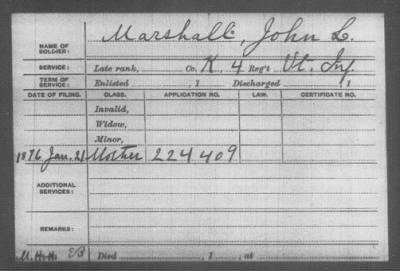 NAME OF SOLDIER: Marshall, John L.
SERVICE: Late rank, Co. K, 4 Reg't Vt. Inf.
TERM OF SERVICE: Enlisted , 1 Discharged , 1
DATE OF FILING. CLASS. APPLICATION NO. LAW. CERTIFICATE NO.
Invalid,
Widow,
Minor,
1876 Jan. 21 Mother 224409
ADDITIONAL SERVICES:
REMARKS:
Died , 1 , at